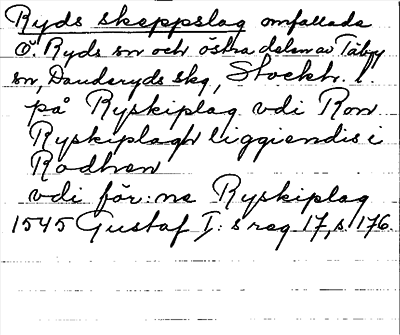 Ryds skeppslag omfattade
Ö. Ryds sn och östra delen av Täby
sn, Danderyds skg, Stockh. l.
på Ryskiplag vdi Ron
Ryskiplagh liggiendis i
Rodhen
vdi för:ne Ryskiplag
1545 Gustaf I: s reg 17, s. 176.